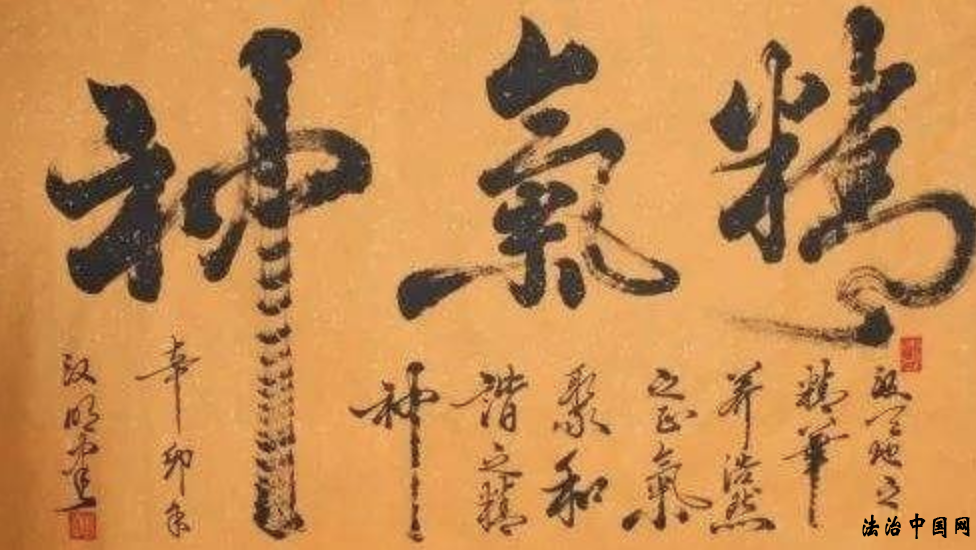 精氣神
取天地之
精華
养浩然
之正氣
聚和
諧之精
神
辛卯年
汉明
法治中国网